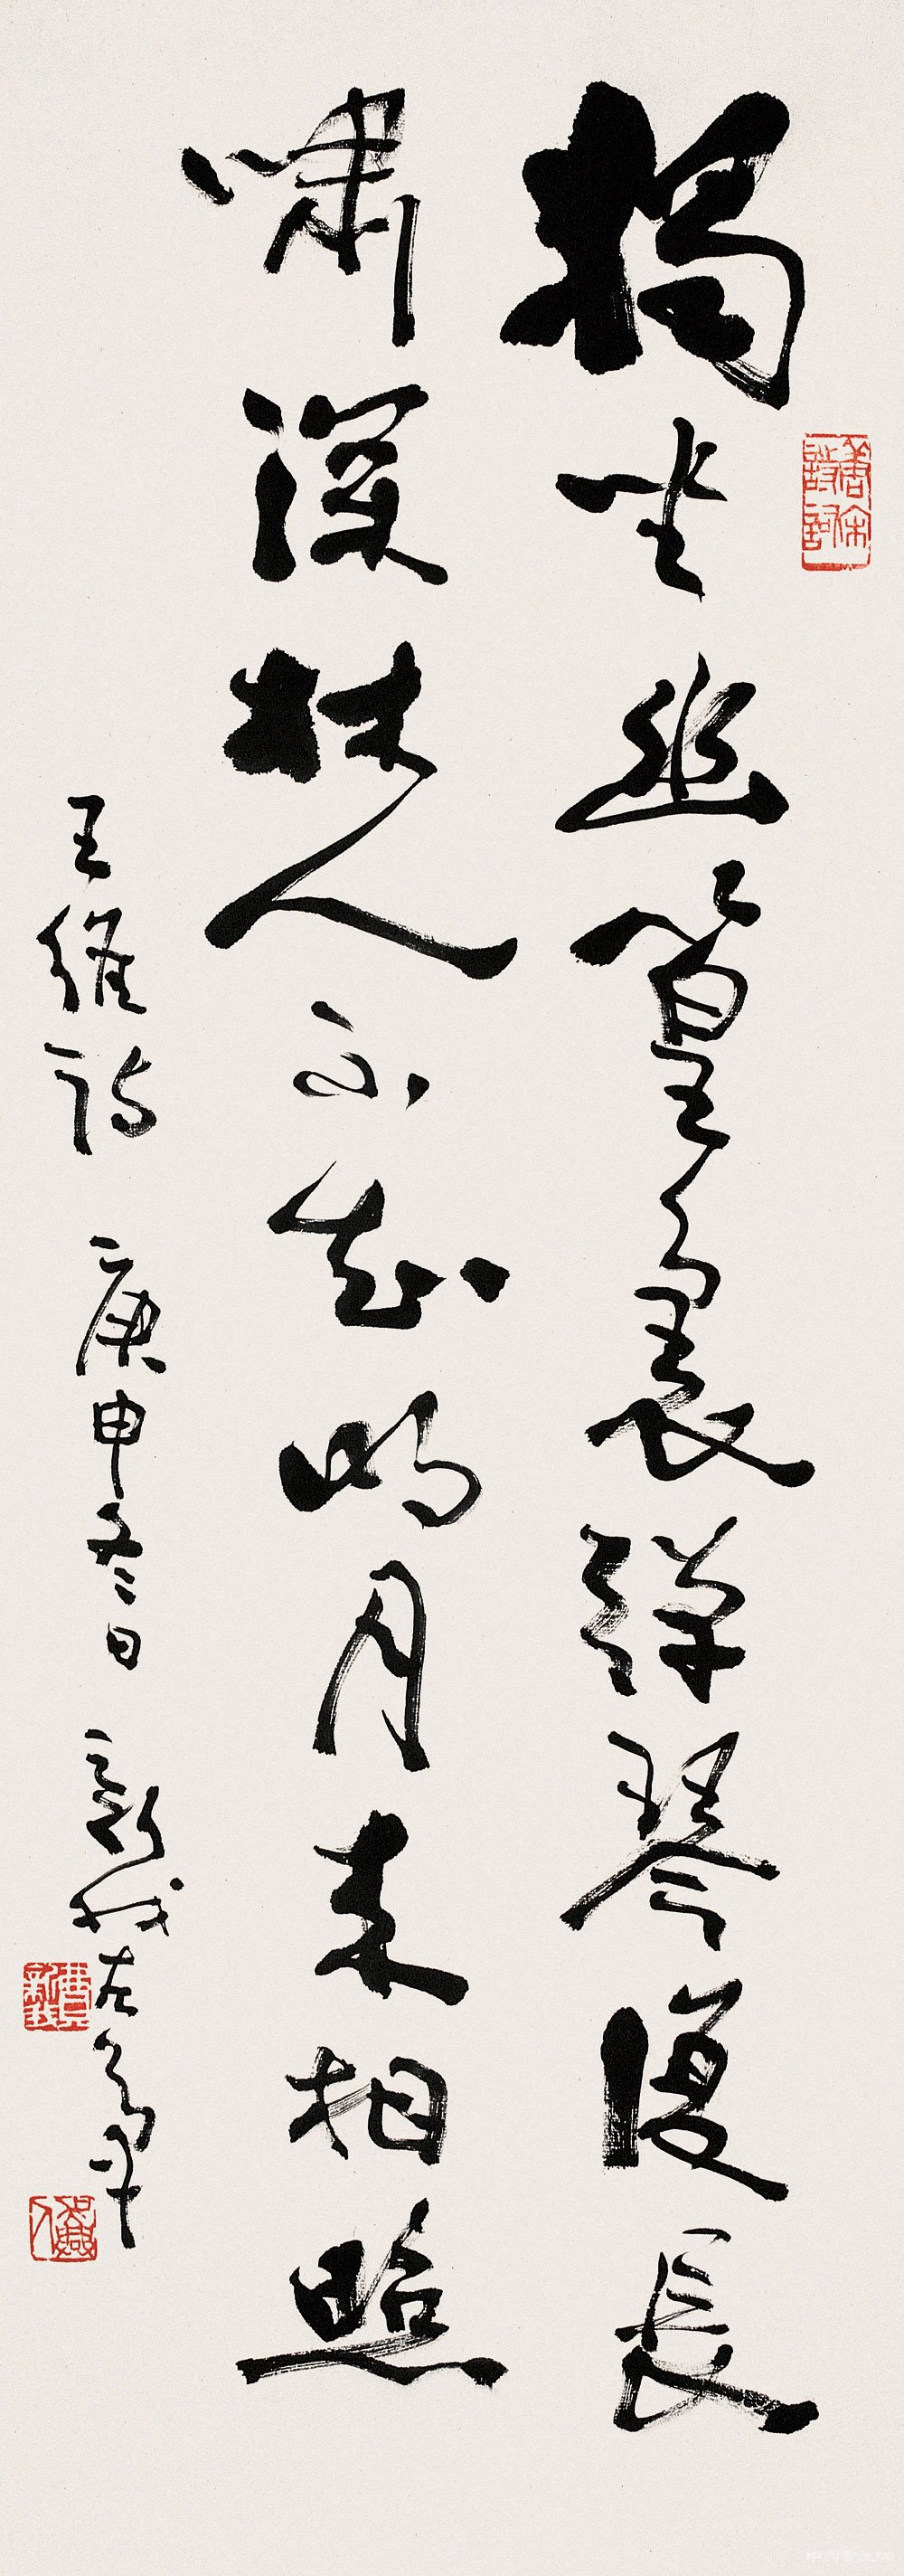 獨坐幽篁裏彈琴復長
嘯深林人不知明月来相照
王維詩 庚申冬日 新我左筆